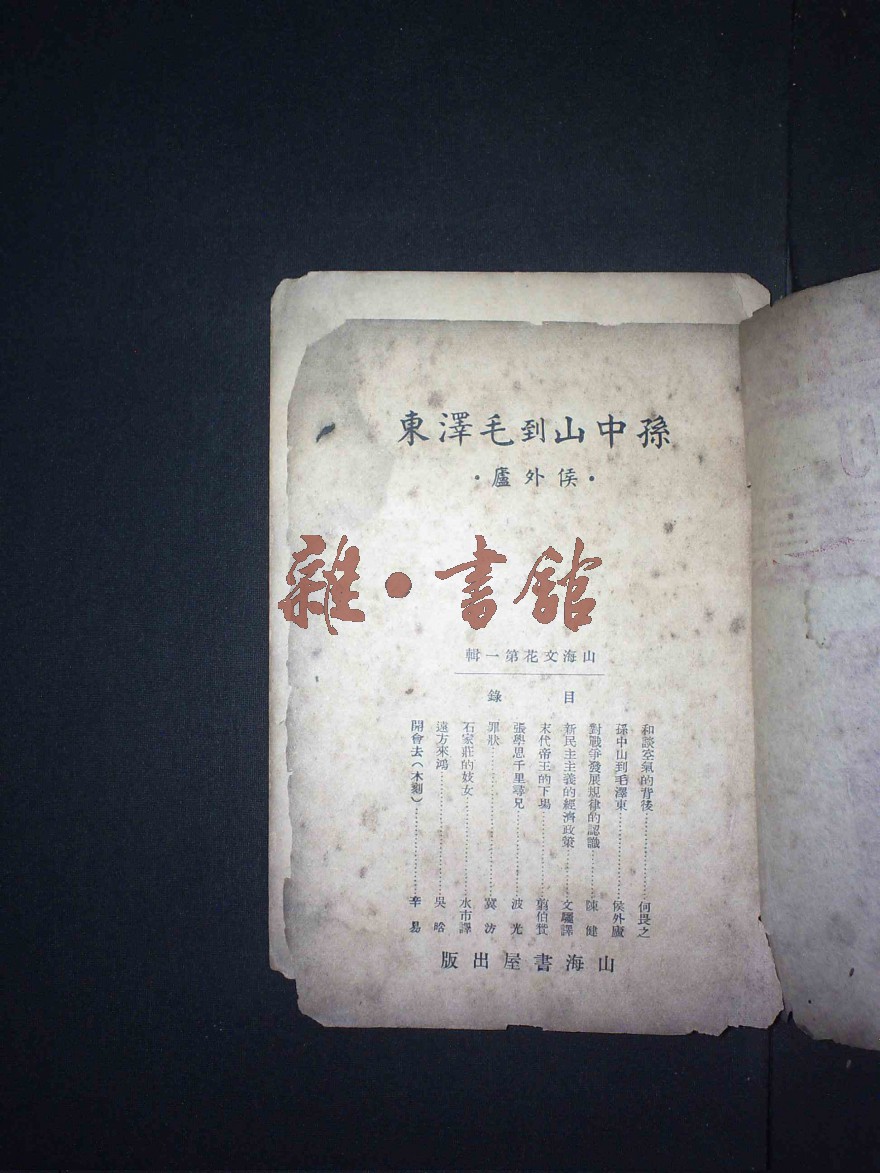 孫中山到毛澤東
·侯外廬·
雜·書館
山海文花第一輯
目錄
和談空氣的背後…………何畏之
孫中山到毛澤東…………侯外廬
對戰爭發展規律的認識…………陳健
新民主主義的經濟政策…………文驪譯
末代帝王的下場…………翦伯贊
張學思千里尋兄…………波光
罪狀…………冀汸
石家莊的妓女…………水市譯
遠方來鴻…………吳晗
開會去(木刻)…………辛易
山海書屋出版